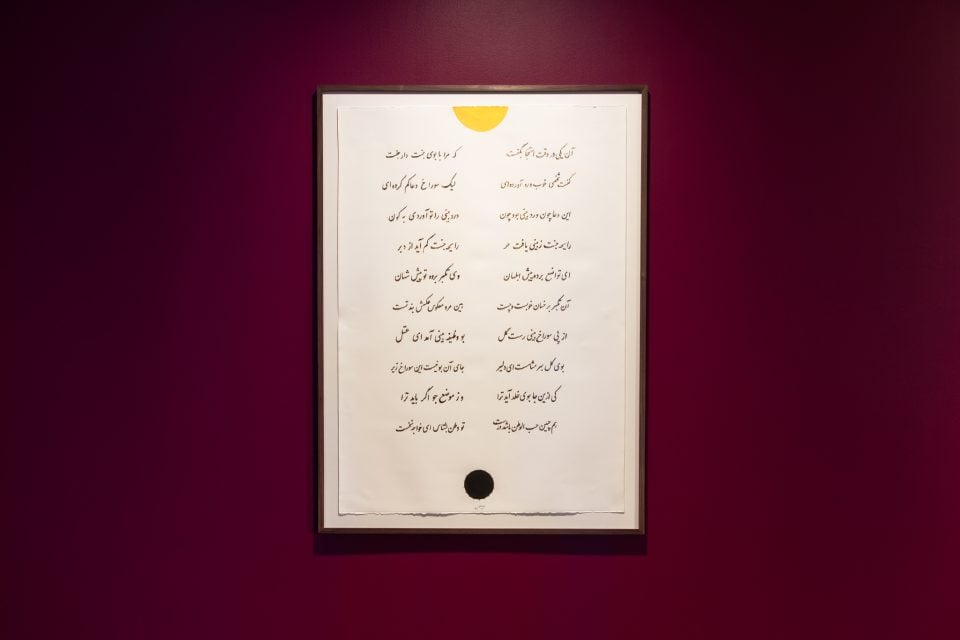 آن یکی در وقت استنجا بگفت که مرا با بوی جنت دار جفت
گفت شخصی خوب ورد آورده‌ای لیک سوراخ دعا گم کرده‌ای
این دعا چون ورد بینی بود چون ورد بینی را تو آوردی به کون
رایحه جنت ز بینی یافت حر رایحه جنت کم آید از دبر
ای تواضع برده پیش ابلهان وی تکبر برده تو پیش شهان
آن تکبر بر خسان خوبست و چست هین مرو معکوس عکسش بند تست
از پی سوراخ بینی رست گل بو وظیفه بینی آمد ای عتل
بوی گل بهر مشامست ای دلیر جای آن بو نیست این سوراخ زیر
کی ازین جا بوی خلد آید ترا و ز موضع جو اگر باید ترا
هم چنین حب الوطن باشد درست تو وطن بشناس ای خواجه نخست